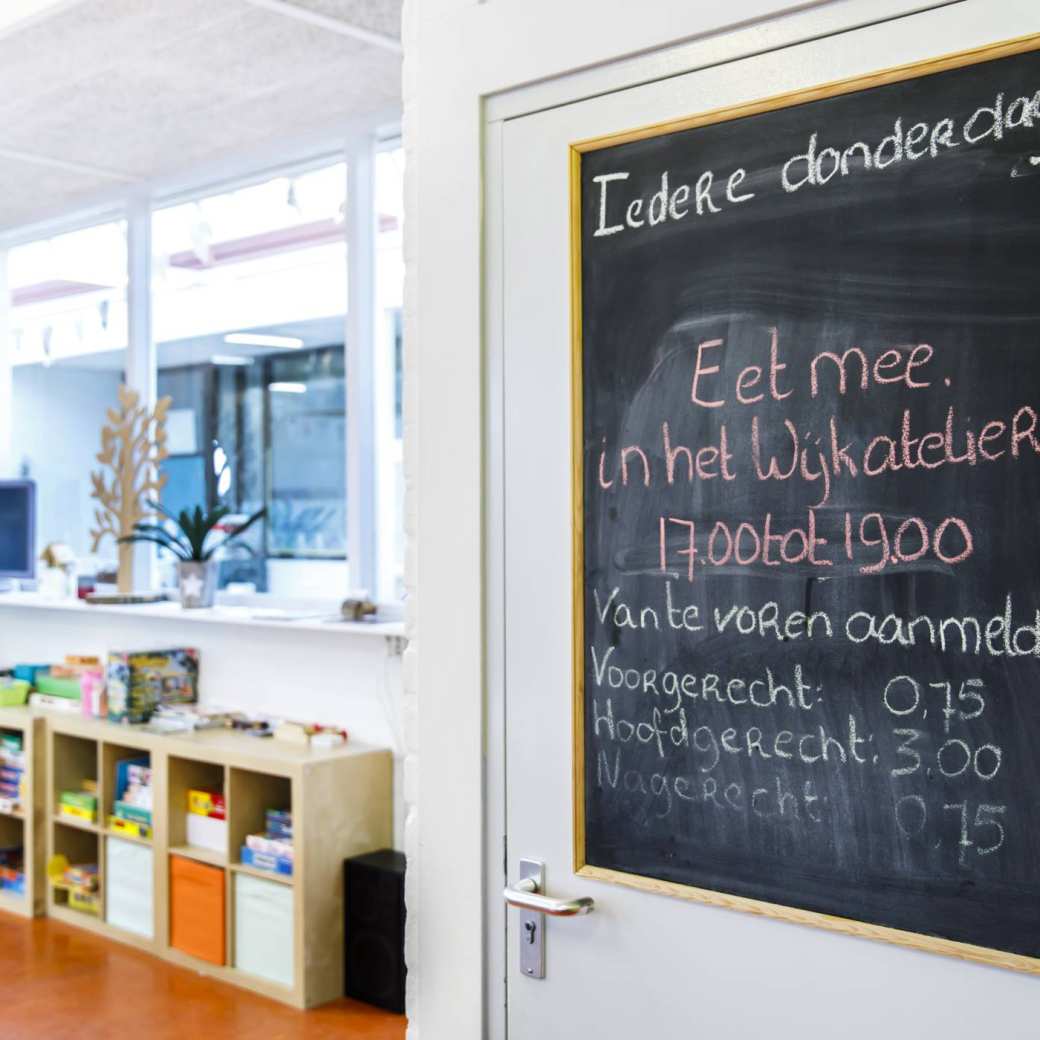 Iedere donderdag
Eet mee.
in het Wijkatelier
17.00 tot 19.00
Van te voren aanmeld
Voorgerecht: 0,75
Hoofdgerecht: 3.00
Nagerecht: 0,75